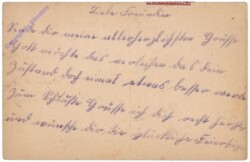 Liebe Freundin
Sende dir meine allerherzlichsten Grüsse
Gott möchte das verleihen das dein
Zustand doch mal etwas besser werde
Zum Schlusse Grüsse ich dich recht herzl
und wünsche dir der glückliche Feiertag